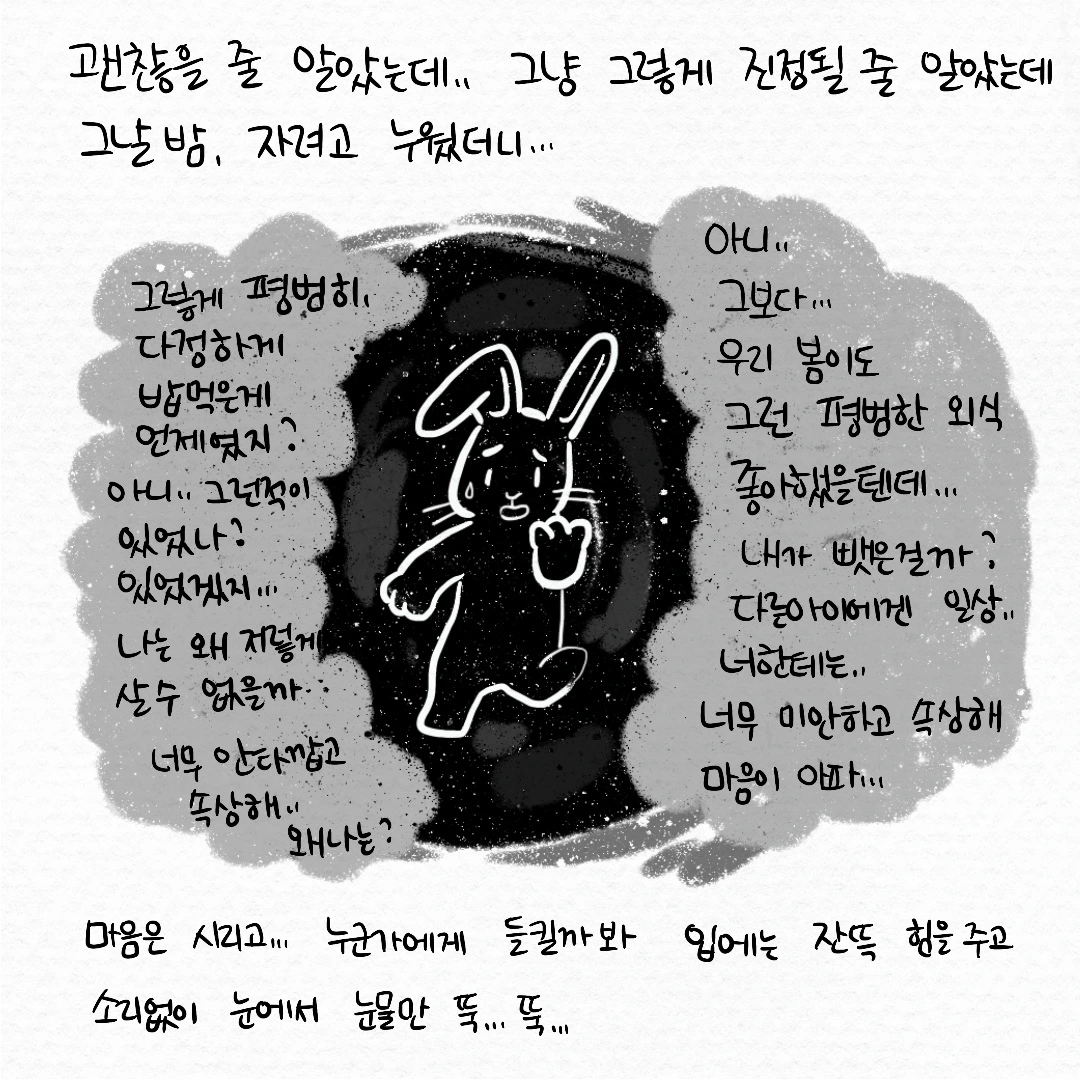 괜찮을 줄 알았는데.. 그냥 그렇게 진정될 줄 알았는데
그날 밤, 자려고 누웠더니...
그렇게 평범히,
다정하게
밥먹은게
언제였지?
아니.. 그런적이
있었나?
있었겠지...
나는 왜 저렇게
살수 없을까..
너무 안타깝고
속상해..
왜나는?
아니..
그보다...
우리 봄이도
그런 평범한 외식
좋아했을텐데...
내가 뺏은걸까?
다른아이에겐 일상..
너한테는..
너무 미안하고 속상해
마음이 아파...
마음은 시리고... 누군가에게 들킬까봐 입에는 잔뜩 힘을 주고
소리없이 눈에서 눈물만 뚝... 뚝...